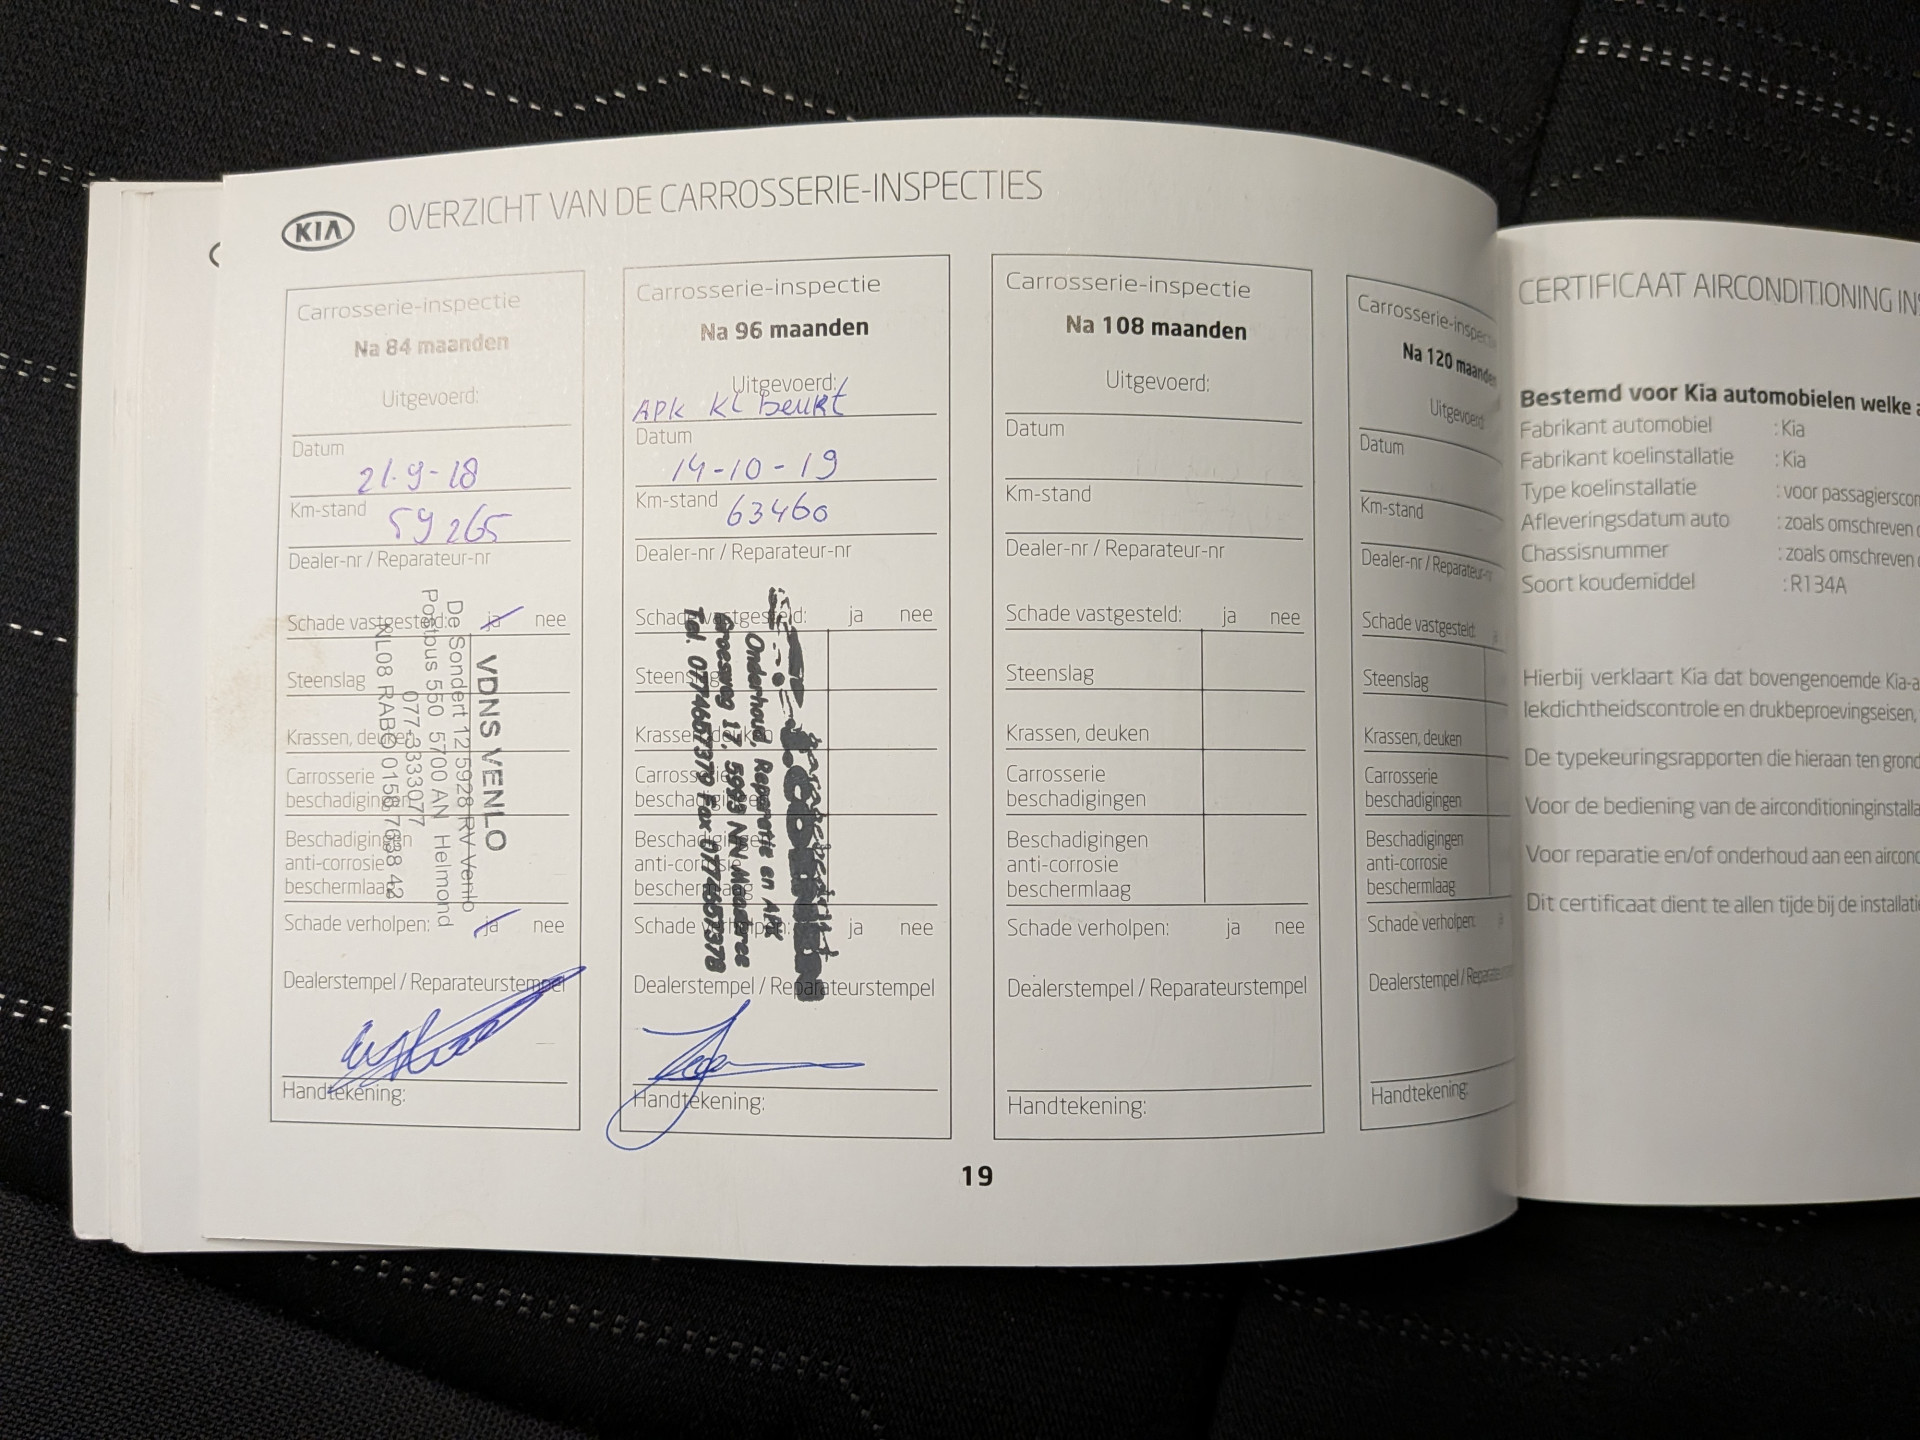 KIA
OVERZICHT VAN DE CARROSSERIE-INSPECTIES
Carrosserie-inspectie
Na 84 maanden
Uitgevoerd:
Datum
21-9-18
Km-stand 59265
Dealer-nr / Reparateur-nr
Schade vastgesteld: ja nee
Steenslag
Krassen, deuken
Carrosserie
beschadigingen
Beschadigingen
anti-corrosie
beschermlaag
Schade verholpen: ja nee
Dealerstempel / Reparateurstempel
Handtekening:
VDNS VENLO
De Sondert 12 5928 RV Venlo
Postbus 550 5700 AN Helmond
077-3333077
Carrosserie-inspectie
Na 96 maanden
Uitgevoerd:
APK
Datum
14-10-19
Km-stand 63460
Dealer-nr / Reparateur-nr
Schade vastgesteld: ja nee
Steenslag
Krassen, deuken
Carrosserie
beschadigingen
Beschadigingen
anti-corrosie
beschermlaag
Schade verholpen: ja nee
Dealerstempel / Reparateurstempel
Handtekening:
Onderhoud, Reparatie en APK
17, 5993 Maasbree
Tel. 0774657379 Fax 0774657378
Carrosserie-inspectie
Na 108 maanden
Uitgevoerd:
Datum
Km-stand
Dealer-nr / Reparateur-nr
Schade vastgesteld: ja nee
Steenslag
Krassen, deuken
Carrosserie
beschadigingen
Beschadigingen
anti-corrosie
beschermlaag
Schade verholpen: ja nee
Dealerstempel / Reparateurstempel
Handtekening:
Na 120
Datum
Km-stand
Dealer-nr / Reparateur-nr
Schade vastgesteld:
Steenslag
Krassen, deuken
Carrosserie
beschadigingen
Beschadigingen
anti-corrosie
beschermlaag
Schade verholpen:
Dealerstempel /
Handtekening:
19
CERTIFICAAT AIRCONDITIONING
Bestemd voor Kia automobielen welke
Fabrikant automobiel : Kia
Fabrikant koelinstallatie : Kia
Type koelinstallatie : voor
Afleveringsdatum auto : zoals omschreven
Chassisnummer : zoals omschreven
Soort koudemiddel : R134A
Hierbij verklaart Kia dat bovengenoemde
lekdichtheidscontrole en drukbeproevingseisen,
De typekeuringsrapporten die hieraan ten
Voor de bediening van de
Voor reparatie en/of onderhoud aan een
Dit certificaat dient te allen tijde bij de